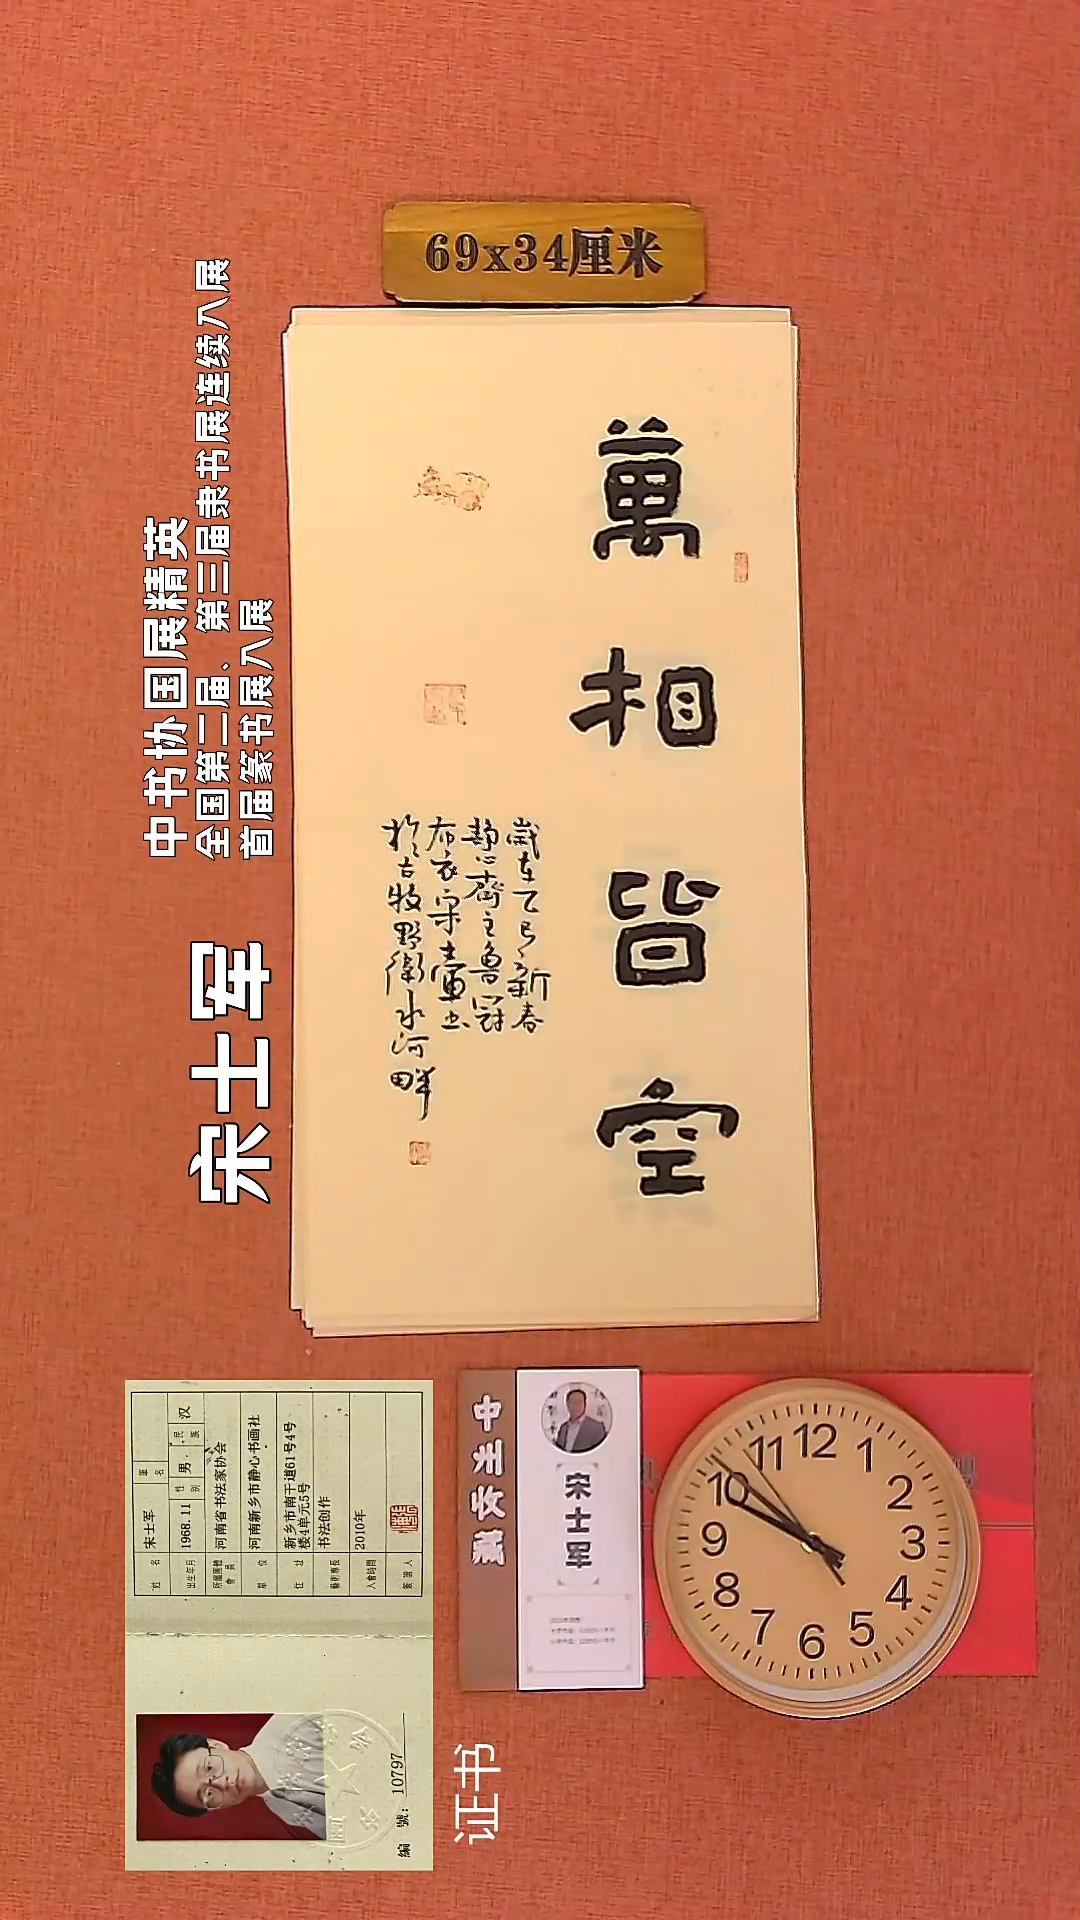 69x34厘米
萬相皆空
歲在乙巳新春
靜心齋主魯冠
布衣宋士軍書
於古牧野衛水河畔
中书协国展精英
全国第二届、第三届隶书展连续入展
首届篆书展入展
宋士军
姓名 宋士军 筆名
出生年月 1968.11 性别 男 民族 汉
所屬團體會員 河南省书法家协会
單位 河南新乡市静心书画社
住址 新乡市南干道61号4号楼4单元5号
藝術專長 书法创作
入會時間 2010年
簽證人
編號: 10797
证书
中州收藏
宋士军
12
1
2
3
4
5
6
7
8
9
10
11